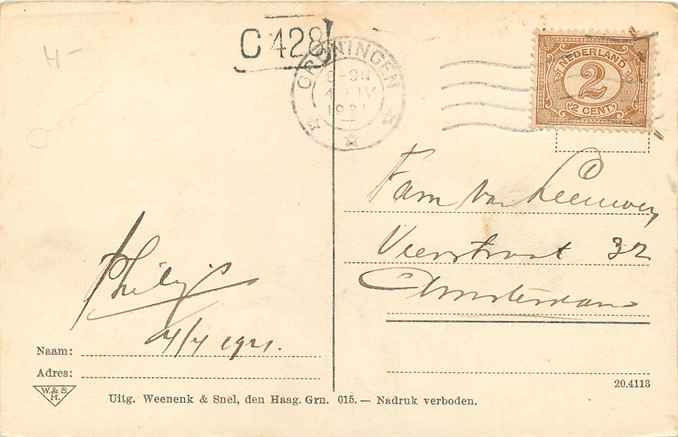 H-
C 428
GRONINGEN
1921
NEDERLAND
2
2 CENT
Fam van Leeuwen
Veerstraat 32
Amsterdam
Philip
4/4 1921.
Naam:
Adres:
W. & S.
H.
20.4113
Uitg. Weenenk & Snel, den Haag. Grn. 615. — Nadruk verboden.